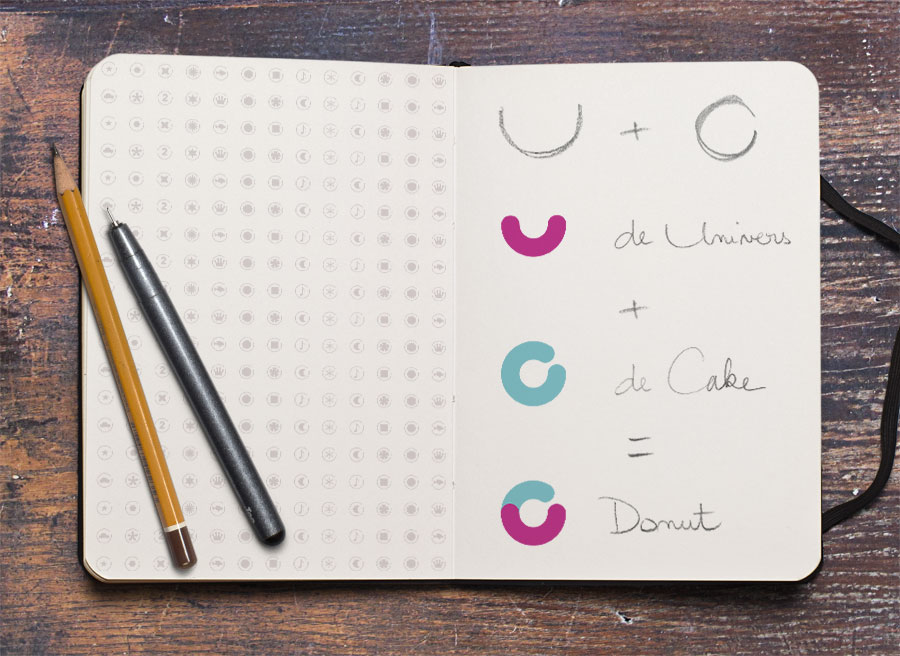 U + C
de Univers
+
de Cake
=
Donut